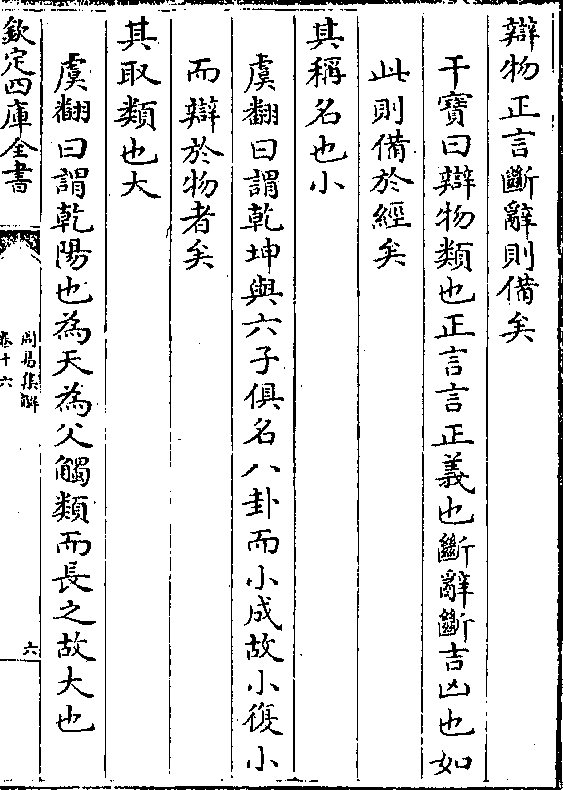 辯物正言斷辭則備矣
干寶曰辯物類也正言言正義也斷辭斷吉凶也如
此則備於經矣
其稱名也小
虞翻曰謂乾坤與六子俱名八卦而小成故小復小
而辯於物者矣
其取類也大
虞翻曰謂乾陽也為天為父觸類而長之故大也
欽定四庫全書
周易集解
卷十六
六